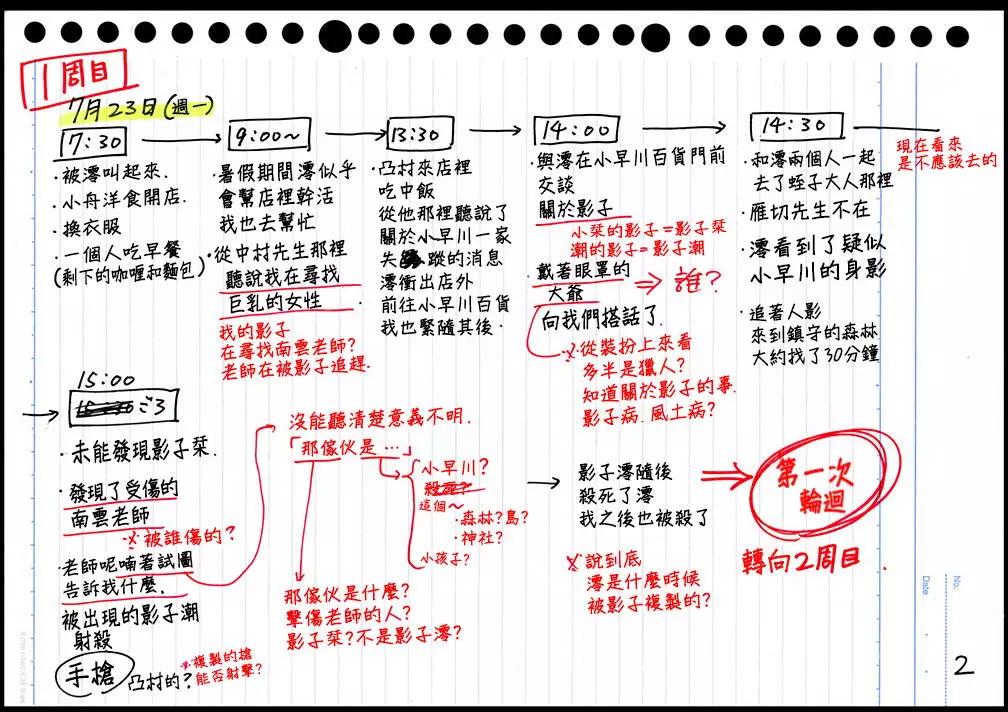 1周目
7月23日(週一)
7:30
・被澪叫起來.
・小舟洋食開店.
・換衣服
・一個人吃早餐
(剩下的咖喱和麵包)
9:00~
・暑假期間澪似乎
會幫店裡幹活
我也去幫忙
・從中村先生那裡
聽說我在尋找
巨乳的女性
我的影子
在尋找南雲老師?
老師在被影子追趕.
13:30
・凸村來店裡
吃中飯
從他那裡聽說了
關於小早川一家
失蹤的消息
澪衝出店外
前往小早川百貨
我也緊隨其後.
14:00
・與澪在小早川百貨門前
交談
關於影子
小栞的影子=影子栞
潮的影子=影子潮
・戴著眼罩的
大爺
⇒誰?
向我們搭話了.
※從裝扮上來看
多半是獵人?
知道關於影子的事.
影子病.風土病?
14:30
・和澪兩個人一起
去了蛭子大人那裡
・雁切先生不在
・澪看到了疑似
小早川的身影
・追著人影
來到鎮守的森林
大約找了30分鐘
現在看來
是不應該去的
15:00
ごろ
・未能發現影子栞.
・發現了受傷的
南雲老師
※被誰傷的?
・老師呢喃著試圖
告訴我什麼.
被出現的影子潮
射殺
手槍
凸村的?
※複製的槍
能否射擊?
沒能聽清楚意義不明.
「那傢伙是…」
小早川?
殺死?
這個~
・森林?島?
・神社?
小孩子?
那傢伙是什麼?
擊傷老師的人?
影子栞?不是影子澪?
影子澪隨後
殺死了澪
我之後也被殺了
※說到底
澪是什麼時候
被影子複製的?
第一次
輪迴
轉向2周目.
No.
Date
2